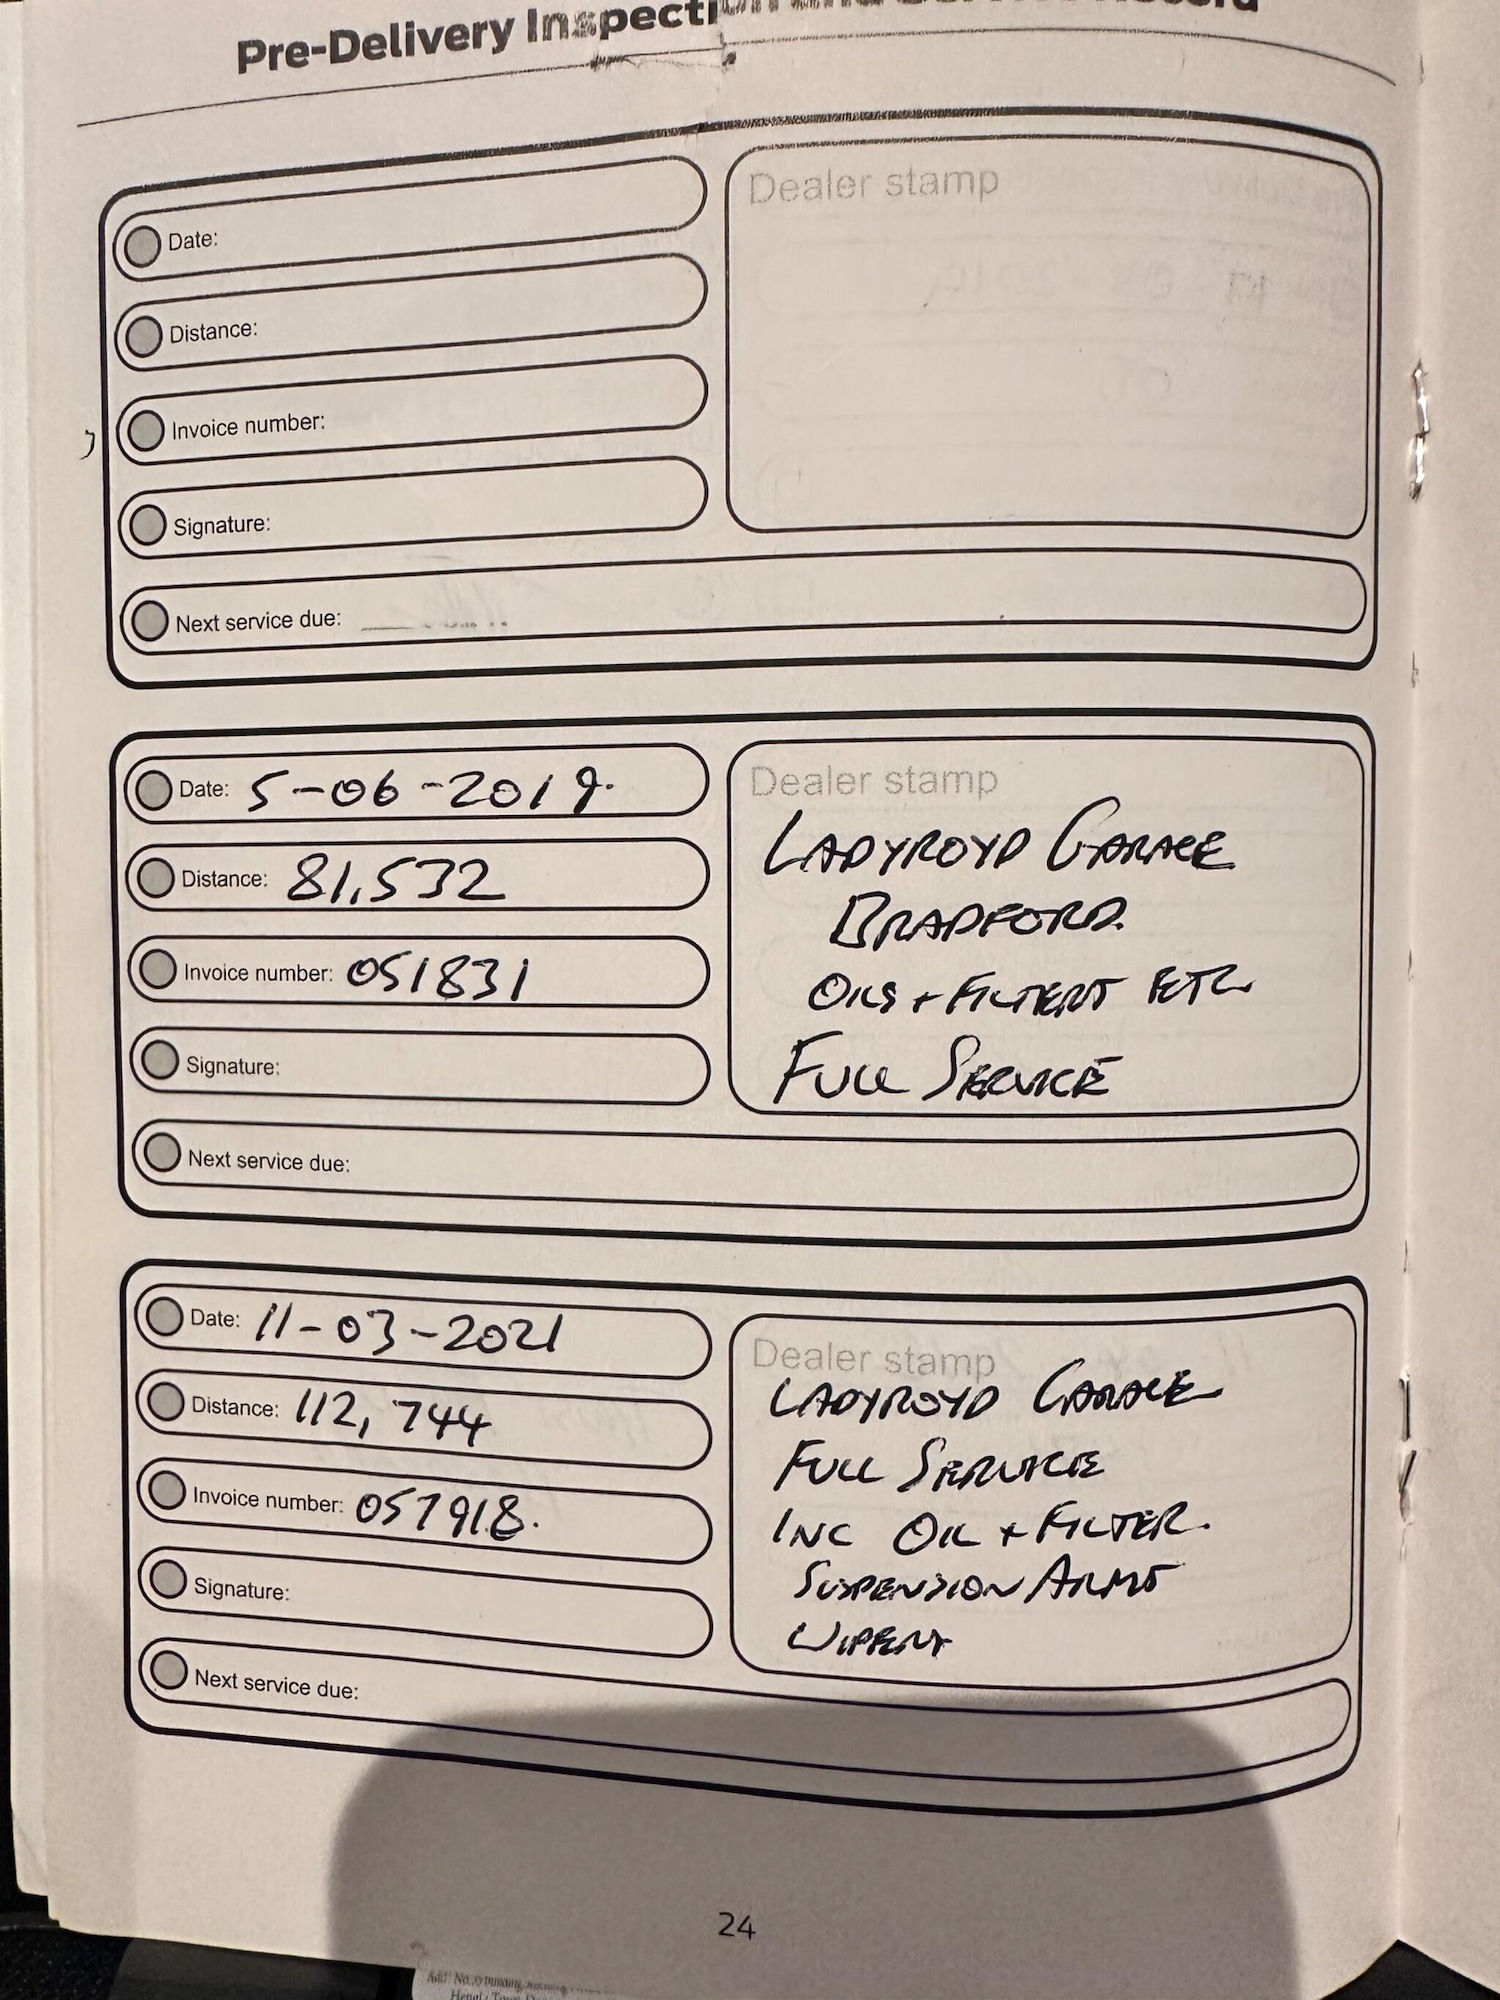 Pre-Delivery Inspection and Service Record
Date:
Distance:
Invoice number:
Signature:
Next service due:
Dealer stamp
Date: 5-06-2019.
Distance: 81,532
Invoice number: 051831
Signature:
Next service due:
Dealer stamp
LADYROYD GARAGE
BRADFORD.
OILS + FILTERS ETC
FULL SERVICE
Date: 11-03-2021
Distance: 112,744
Invoice number: 057918.
Signature:
Next service due:
Dealer stamp
LADYROYD GARAGE
FULL SERVICE
INC OIL + FILTER.
SUSPENSION ARMS
WIPERS
24